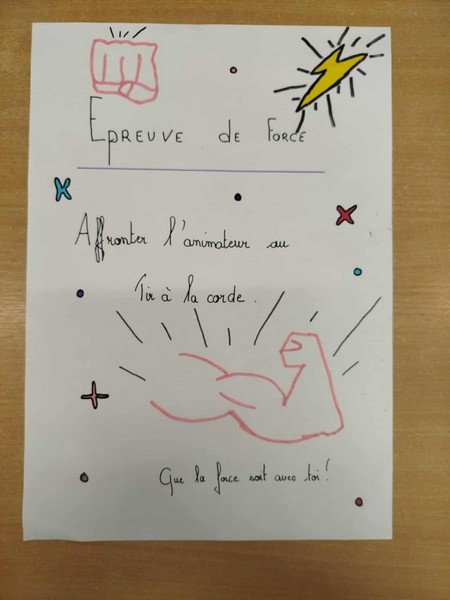 Epreuve de Force
Affronter l'animateur au
Tir à la corde.
Que la force soit avec toi!